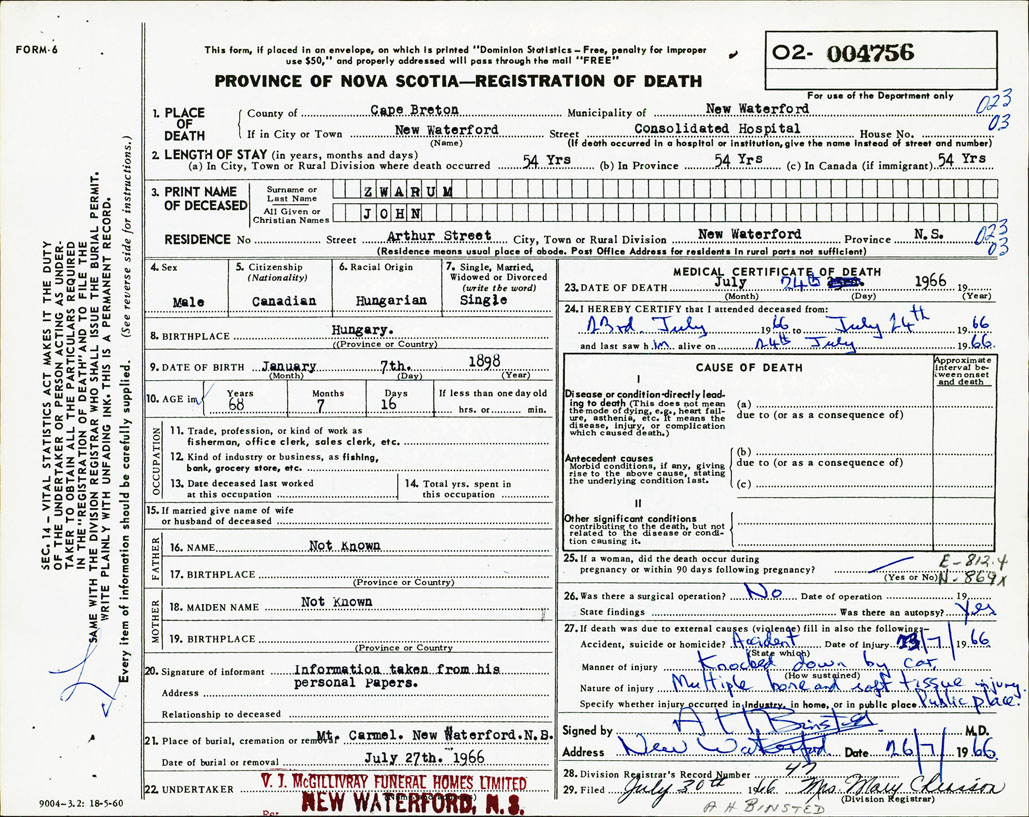 FORM-6
This form, if placed in an envelope, on which is printed "Dominion Statistics – Free, penalty for improper
use $50," and properly addressed will pass through the mail "FREE"
O2- 004756
PROVINCE OF NOVA SCOTIA—REGISTRATION OF DEATH
For use of the Department only
1. PLACE OF DEATH County of Cape Breton Municipality of New Waterford 023
If in City or Town New Waterford Street Consolidated Hospital House No. 03
(Name) (If death occurred in a hospital or institution, give the name instead of street and number)
2. LENGTH OF STAY (in years, months and days)
(a) In City, Town or Rural Division where death occurred 54 Yrs (b) In Province 54 Yrs (c) In Canada (if immigrant) 54 Yrs
3. PRINT NAME OF DECEASED
Surname or Last Name ZWARUM
All Given or Christian Names JOHN
RESIDENCE No Street Arthur Street City, Town or Rural Division New Waterford Province N.S. 023
03
(Residence means usual place of abode. Post Office Address for residents in rural parts not sufficient)
4. Sex
Male
5. Citizenship
(Nationality)
Canadian
6. Racial Origin
Hungarian
7. Single, Married,
Widowed or Divorced
(write the word)
Single
8. BIRTHPLACE Hungary.
(Province or Country)
9. DATE OF BIRTH January 7th. 1898
(Month) (Day) (Year)
10. AGE in
Years 68
Months 7
Days 16
If less than one day old
hrs. or min.
OCCUPATION
11. Trade, profession, or kind of work as
fisherman, office clerk, sales clerk, etc.
12. Kind of industry or business, as fishing,
bank, grocery store, etc.
13. Date deceased last worked
at this occupation
14. Total yrs. spent in
this occupation
15. If married give name of wife
or husband of deceased
FATHER
16. NAME Not Known
17. BIRTHPLACE
(Province or Country)
MOTHER
18. MAIDEN NAME Not Known
19. BIRTHPLACE
(Province or Country)
20. Signature of informant Information taken from his
personal Papers.
Address
Relationship to deceased
21. Place of burial, cremation or removal Mt. Carmel. New Waterford.N.S.
Date of burial or removal July 27th. 1966
22. UNDERTAKER V. J. McGILLIVRAY FUNERAL HOMES LIMITED
NEW WATERFORD, N. S.
Per
MEDICAL CERTIFICATE OF DEATH
23. DATE OF DEATH July 24th 1966 19
(Month) (Day) (Year)
24. I HEREBY CERTIFY that I attended deceased from:
23rd July 1966 to July 24th 1966
and last saw him alive on 24th July 1966.
CAUSE OF DEATH
Approximate
interval be-
tween onset
and death
I
Disease or condition directly lead-
ing to death (This does not mean
the mode of dying, e.g., heart fail-
ure, asthenia, etc. It means the
disease, injury, or complication
which caused death.)
(a)
due to (or as a consequence of)
Antecedent causes
Morbid conditions, if any, giving
rise to the above cause, stating
the underlying condition last.
(b)
due to (or as a consequence of)
(c)
II
Other significant conditions
contributing to the death, but not
related to the disease or condi-
tion causing it.
25. If a woman, did the death occur during
pregnancy or within 90 days following pregnancy?
(Yes or No)
E-812.4
N-869x
26. Was there a surgical operation? No Date of operation 19
State findings Was there an autopsy? Yes
27. If death was due to external causes (violence) fill in also the following:—
Accident, suicide or homicide? Accident Date of injury 23/7/1966
(State which)
Manner of injury Knocked down by car.
(How sustained)
Nature of injury Multiple bone and soft tissue injury.
Specify whether injury occurred in industry, in home, or in public place. Public place.
Signed by A H Binsted M.D.
Address New Waterford Date 26/7/1966
28. Division Registrar's Record Number 47
29. Filed July 30th 1966 Mrs. Mary
(Division Registrar)
A H BINSTED
SEC. 14 – VITAL STATISTICS ACT MAKES IT THE DUTY
OF THE UNDERTAKER OR PERSON ACTING AS UNDER-
TAKER TO OBTAIN ALL THE PARTICULARS REQUIRED
IN THE "REGISTRATION OF DEATH" AND TO FILE THE
SAME WITH THE DIVISION REGISTRAR WHO SHALL ISSUE THE BURIAL PERMIT.
WRITE PLAINLY WITH UNFADING INK. THIS IS A PERMANENT RECORD.
Every item of information should be carefully supplied. (See reverse side for instructions.)
9004-3.2: 18-5-60